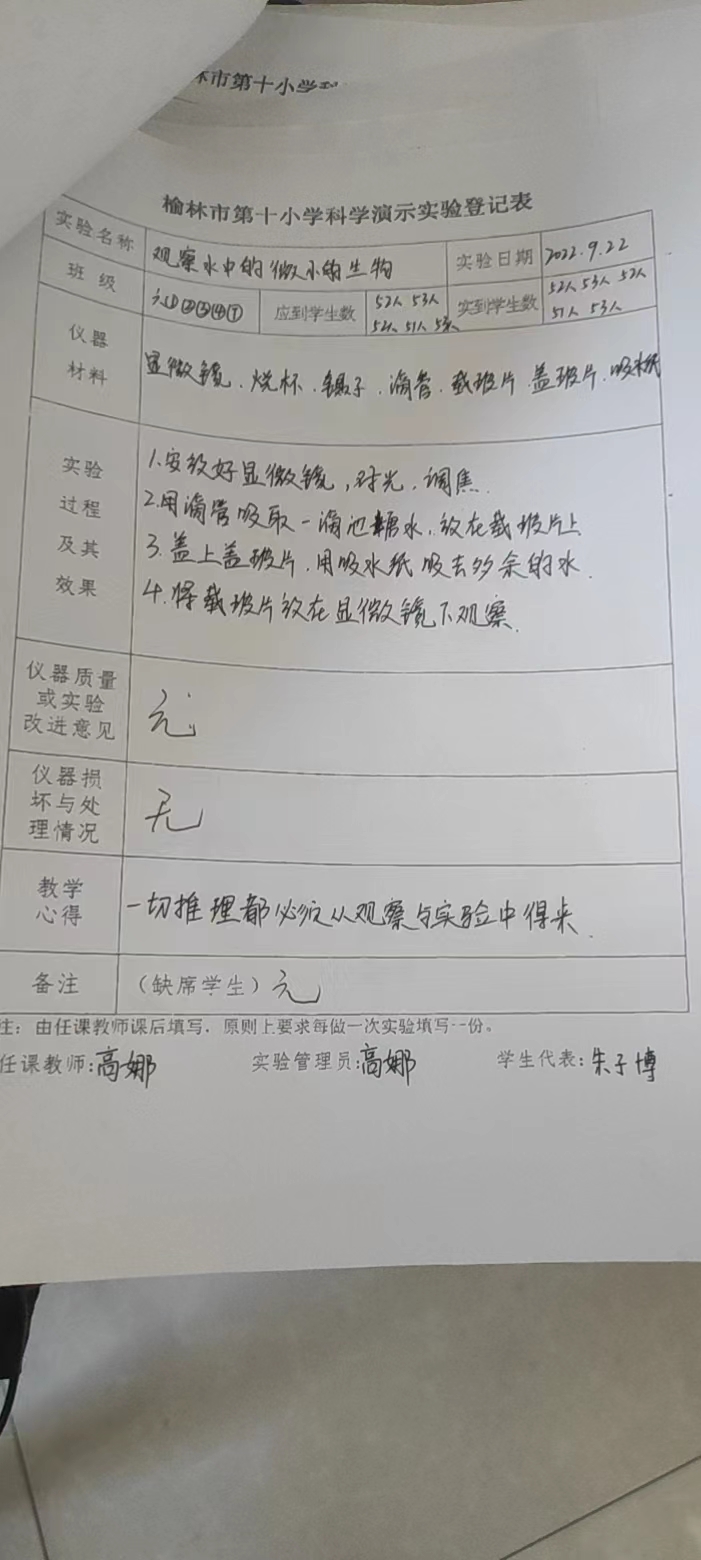 林市第十小学科
榆林市第十小学科学演示实验登记表
实验名称 观察水中的微小的生物 实验日期 2022.9.22
班级 六①②③④⑦ 应到学生数 52人 53人 52人 51人 53人 实到学生数 52人 53人 52人 51人 53人
仪器材料 显微镜.烧杯.镊子.滴管.载玻片.盖玻片.吸水纸
实验过程及其效果
1.安放好显微镜,对光.调焦.
2.用滴管吸取一滴池塘水.放在载玻片上
3.盖上盖玻片.用吸水纸吸去多余的水.
4.将载玻片放在显微镜下观察.
仪器质量或实验改进意见 无
仪器损坏与处理情况 无
教学心得 一切推理都必须从观察与实验中得来.
备注 (缺席学生)无
注: 由任课教师课后填写,原则上要求每做一次实验填写一份。
任课教师:高娜 实验管理员:高娜 学生代表:朱子博